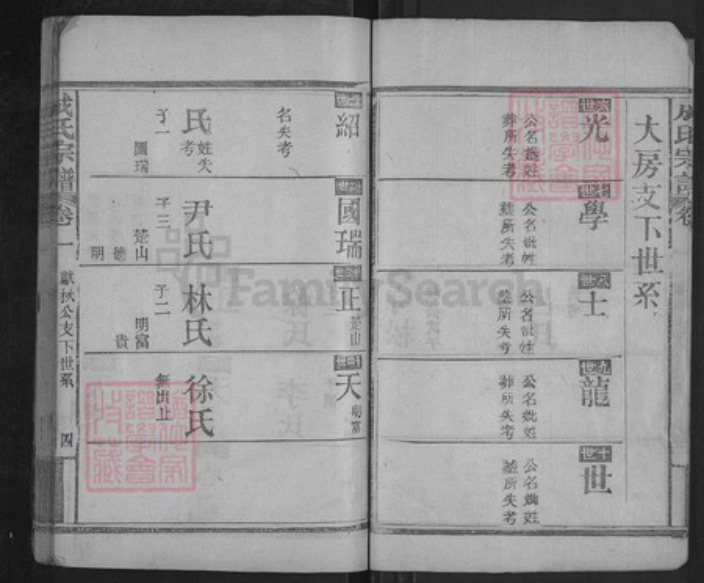 氏宗譜卷
大房支下世系
六世
光
公名妣姓
葬所失考
七世
學
公名妣姓
葬所失考
八世
士
公名妣姓
葬所失考
九世
龍
公名妣姓
葬所失考
十世
世
公名妣姓
葬所失考
紹
名失考
氏
姓失考
子一
國瑞
國瑞
尹氏
子三
楚山
德
明
正
楚山
林氏
子二
明富
貴
天
明富
徐氏
無出止
氏宗譜卷一
獻秋公支下世系
四
FamilySearch